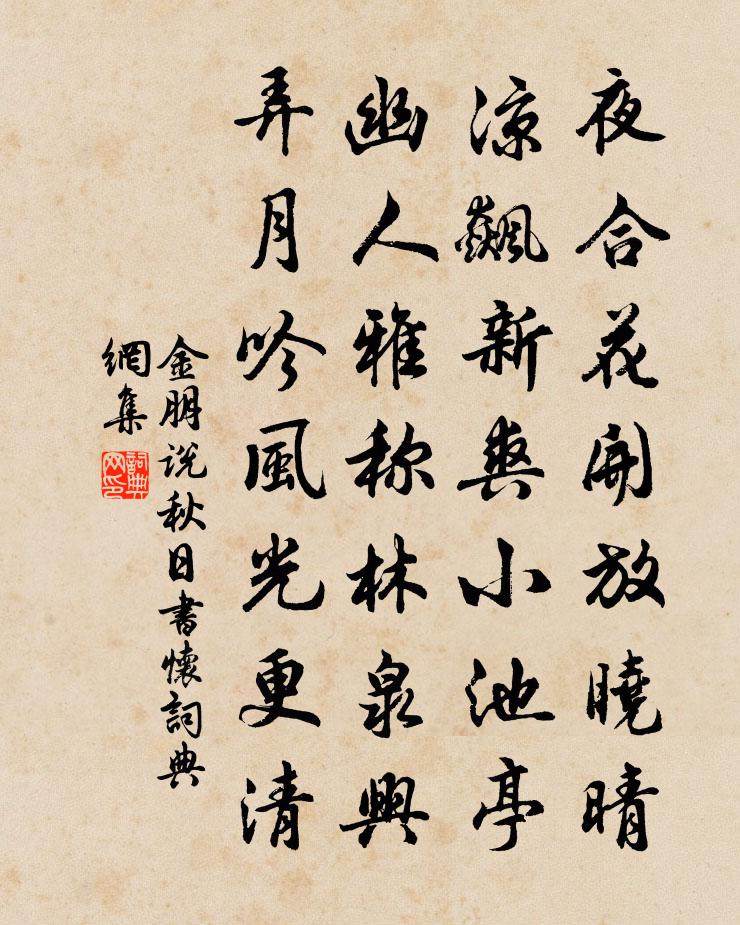 夜合花開放曉晴
涼飆新爽小池亭
幽人雅称林泉興
弄月吟風光更清
金朋说秋日書懷詞典
網集
詞典
网印